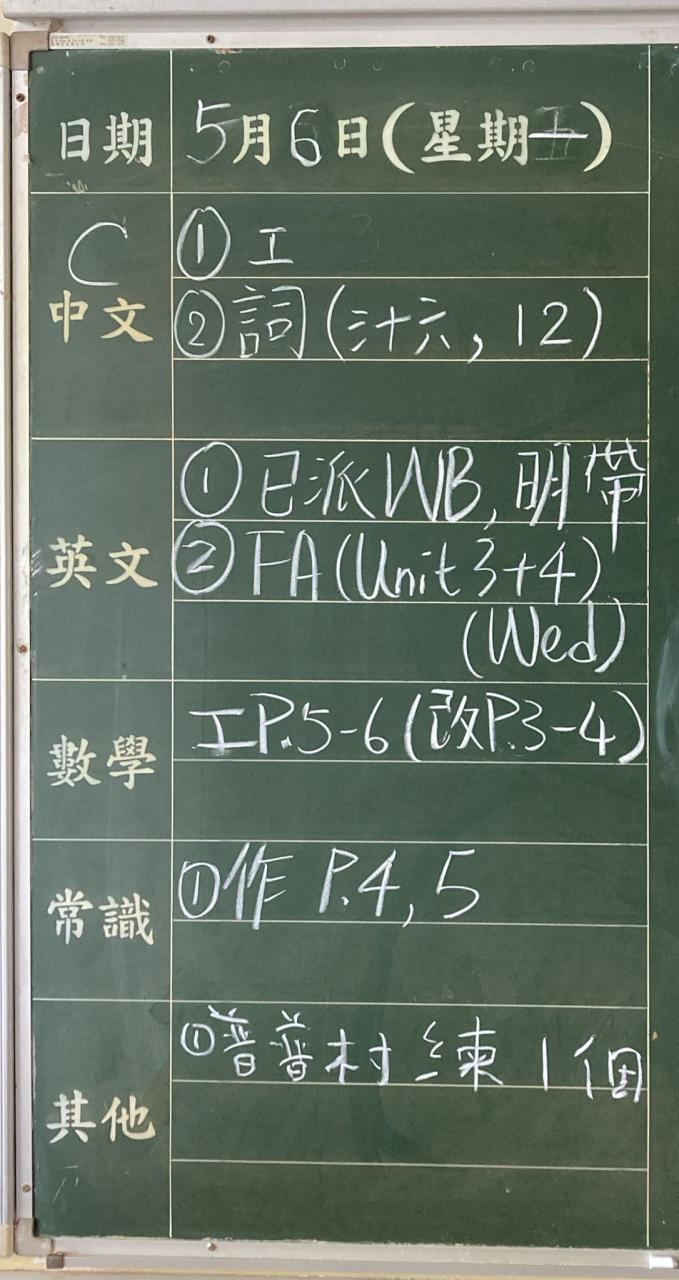 日期 5月6日(星期一)
C
中文
① 工
② 詞(汁六, 12)
英文
① 已派WB, 明帶
② FA(Unit 3+4)
(Wed)
數學
工P.5-6(改P.3-4)
常識
①作 P.4, 5
其他
①普普村 練1個